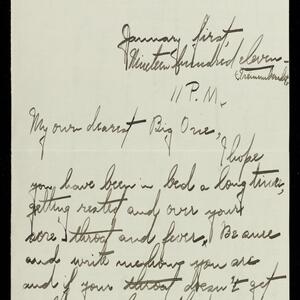 January first,
Nineteen hundred eleven—
11 P.M.
My own dearest Big One,
I hope
you have been in bed a long time,
getting rested and over your
sore throat and fever. Be sure
and write me how you are
and if your throat doesn't get